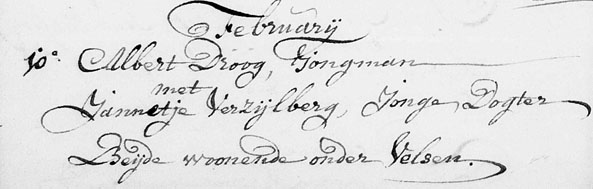 Februarij
10° Albert Droog, Jongman
met
Jannetje Verzijlberg, Jonge Dogter
Beijde woonende onder Velsen.